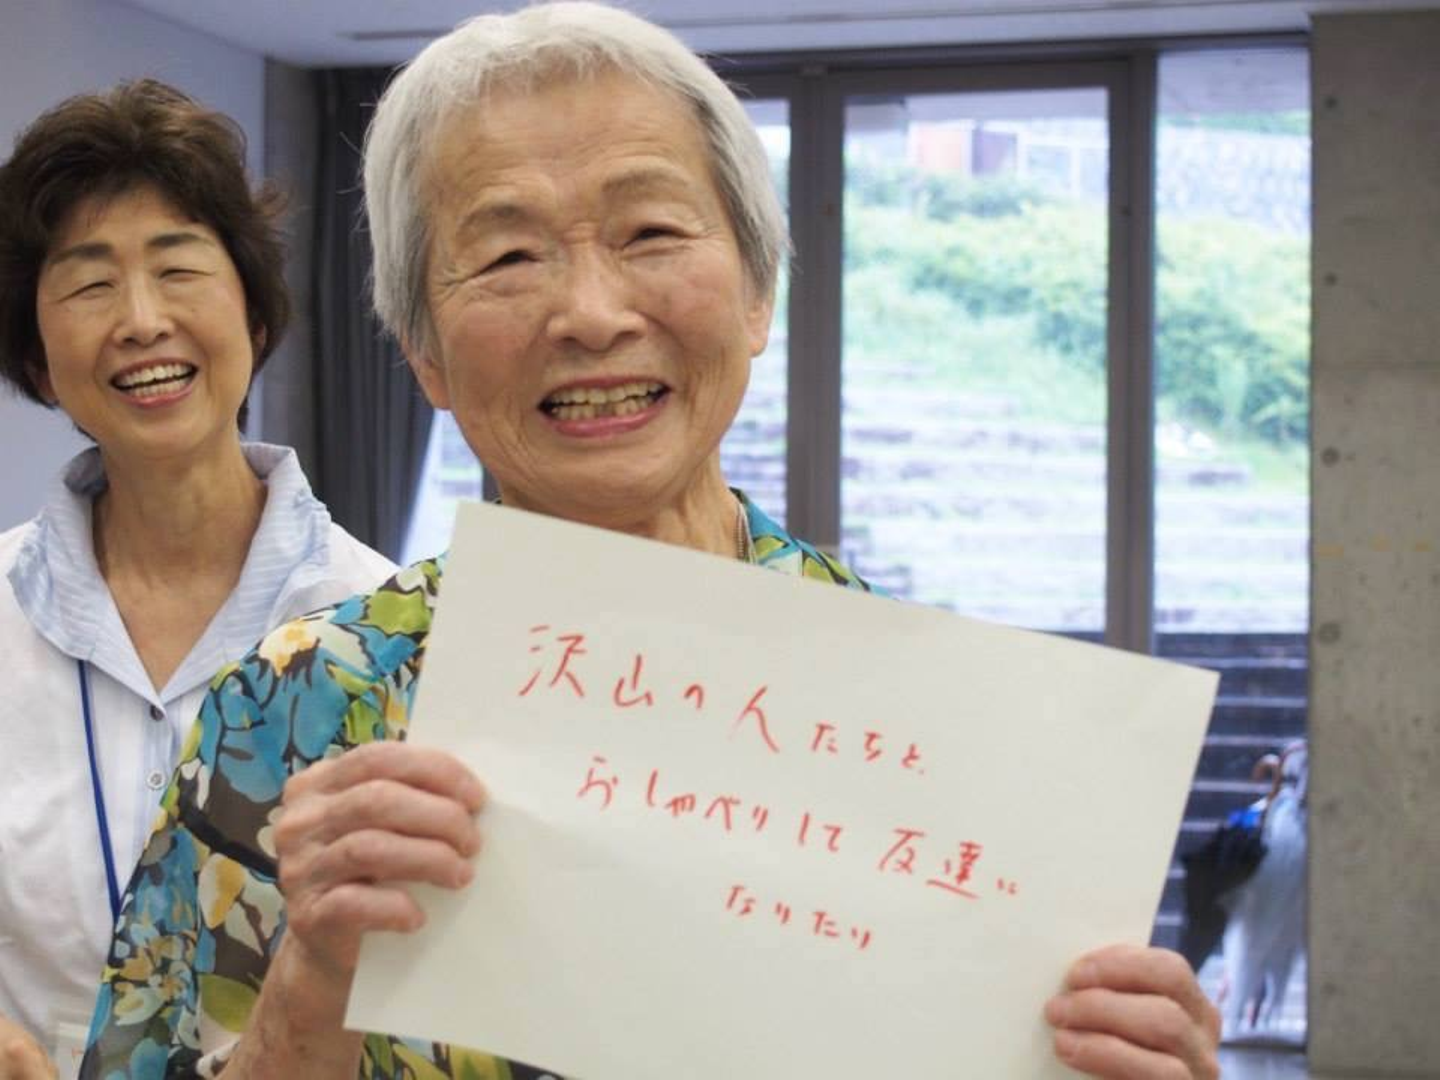 沢山の人たちと、
おしゃべりして友達に
なりたり